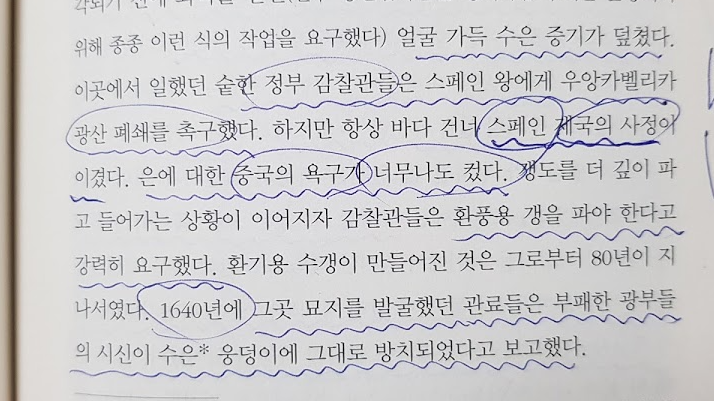 위해 종종 이런 식의 작업을 요구했다) 얼굴 가득 수은 증기가 덮쳤다.
이곳에서 일했던 숱한 정부 감찰관들은 스페인 왕에게 우앙카벨리카
광산 폐쇄를 촉구했다. 하지만 항상 바다 건너 스페인 제국의 사정이
이겼다. 은에 대한 중국의 욕구가 너무나도 컸다. 갱도를 더 깊이 파
고 들어가는 상황이 이어지자 감찰관들은 환풍용 갱을 파야 한다고
강력히 요구했다. 환기용 수갱이 만들어진 것은 그로부터 80년이 지
나서였다. 1640년에 그곳 묘지를 발굴했던 관료들은 부패한 광부들
의 시신이 수은* 웅덩이에 그대로 방치되었다고 보고했다.